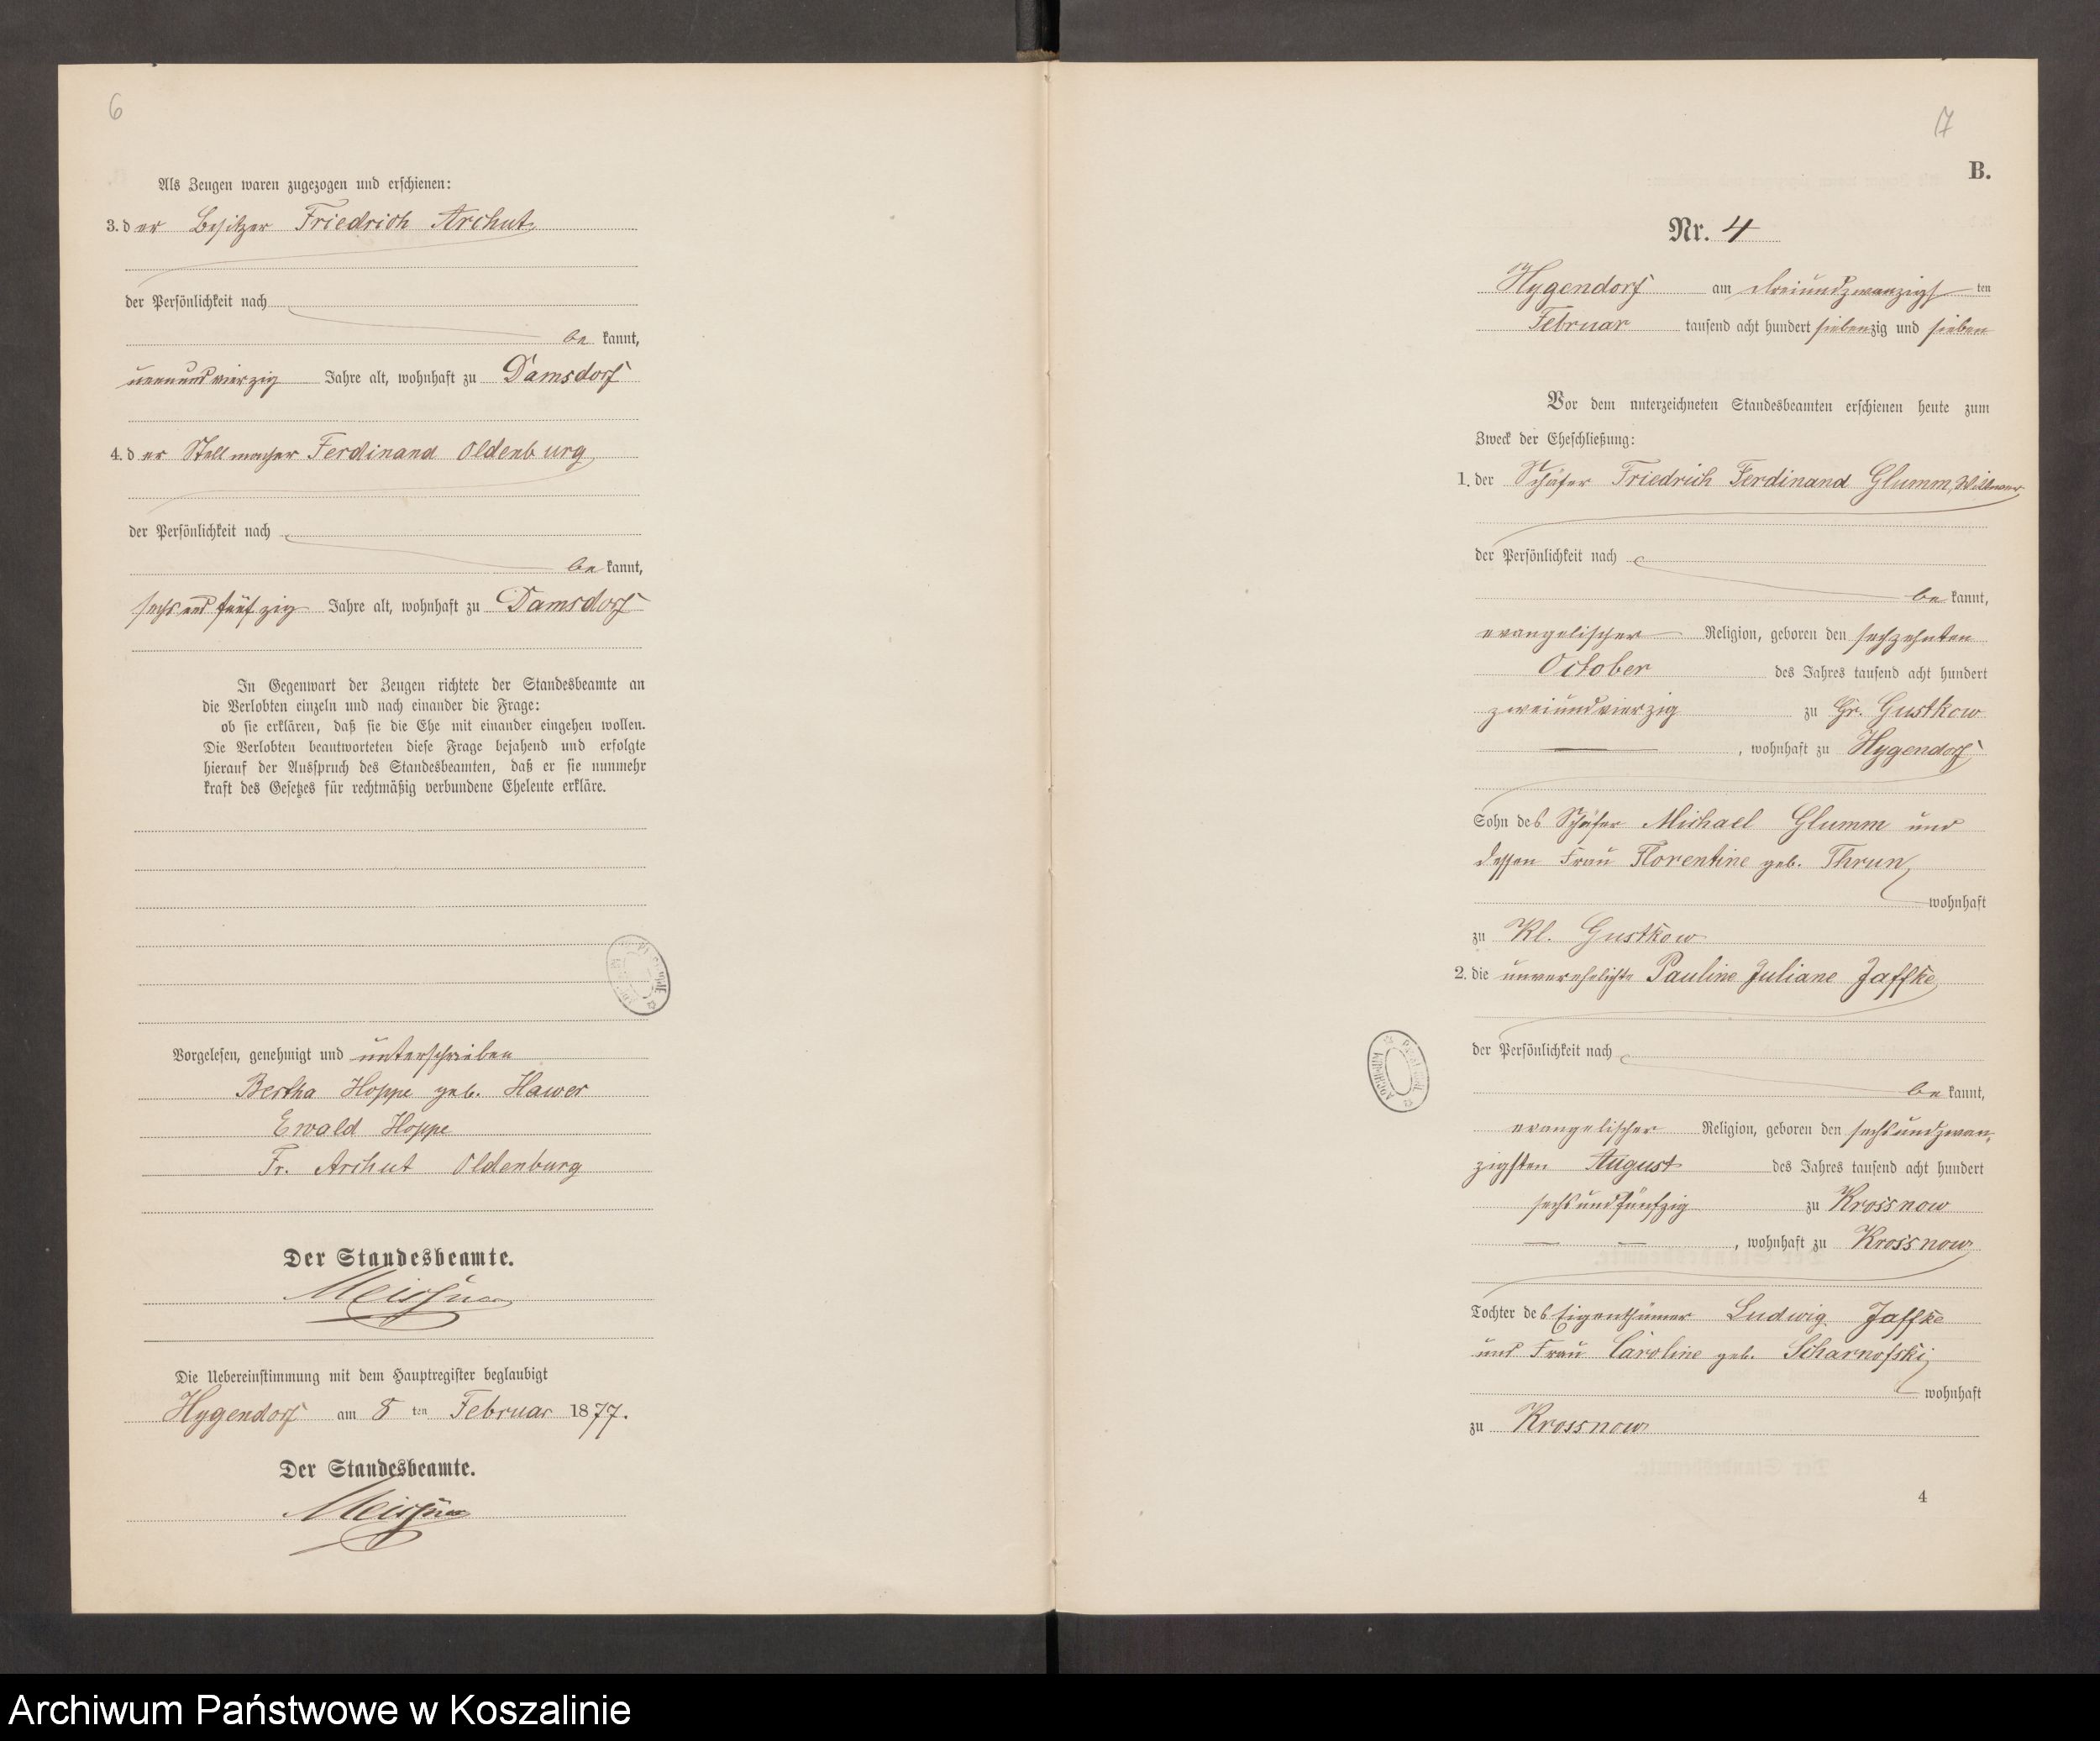 6
Als Zeugen waren zugezogen und erschienen:
3. der Besitzer Friedrich Archut
der Persönlichkeit nach
be kannt,
neunundvierzig Jahre alt, wohnhaft zu Damsdorf
4. der Stellmacher Ferdinand Oldenburg
der Persönlichkeit nach
be kannt,
sechsundfünfzig Jahre alt, wohnhaft zu Damsdorf
In Gegenwart der Zeugen richtete der Standesbeamte an
die Verlobten einzeln und nach einander die Frage:
ob sie erklären, daß sie die Ehe mit einander eingehen wollen.
Die Verlobten beantworteten diese Frage bejahend und erfolgte
hierauf der Ausspruch des Standesbeamten, daß er sie nunmehr
kraft des Gesetzes für rechtmäßig verbundene Eheleute erkläre.
Vorgelesen, genehmigt und unterschrieben
Bertha Hoppe geb. Hawer
Ewald Hoppe
Fr. Archut Oldenburg
Der Standesbeamte.
Die Uebereinstimmung mit dem Hauptregister beglaubigt
Hygendorf am 8 ten Februar 1877.
Der Standesbeamte.
7
B.
Nr. 4
Hygendorf am dreiundzwanzigs ten
Februar tausend acht hundert siebenzig und sieben
Vor dem unterzeichneten Standesbeamten erschienen heute zum
Zweck der Eheschließung:
1. der Schäfer Friedrich Ferdinand Glumm, Wittwer
der Persönlichkeit nach
be kannt,
evangelischer Religion, geboren den sechzehnten
October des Jahres tausend acht hundert
zweiundvierzig zu Gr. Gustkow
, wohnhaft zu Hygendorf
Sohn des Schäfer Michael Glumm und
dessen Frau Florentine geb. Thrun
wohnhaft
zu Kl. Gustkow
2. die unverehelichte Pauline Juliane Jaffke
der Persönlichkeit nach
be kannt,
evangelischer Religion, geboren den sechsundzwan-
zigsten August des Jahres tausend acht hundert
sechsundfünfzig zu Krossnow
, wohnhaft zu Krossnow
Tochter des Eigenthümer Ludwig Jaffke
und Frau Caroline geb. Scharnofski
wohnhaft
zu Krossnow
4
Archiwum Państwowe w Koszalinie